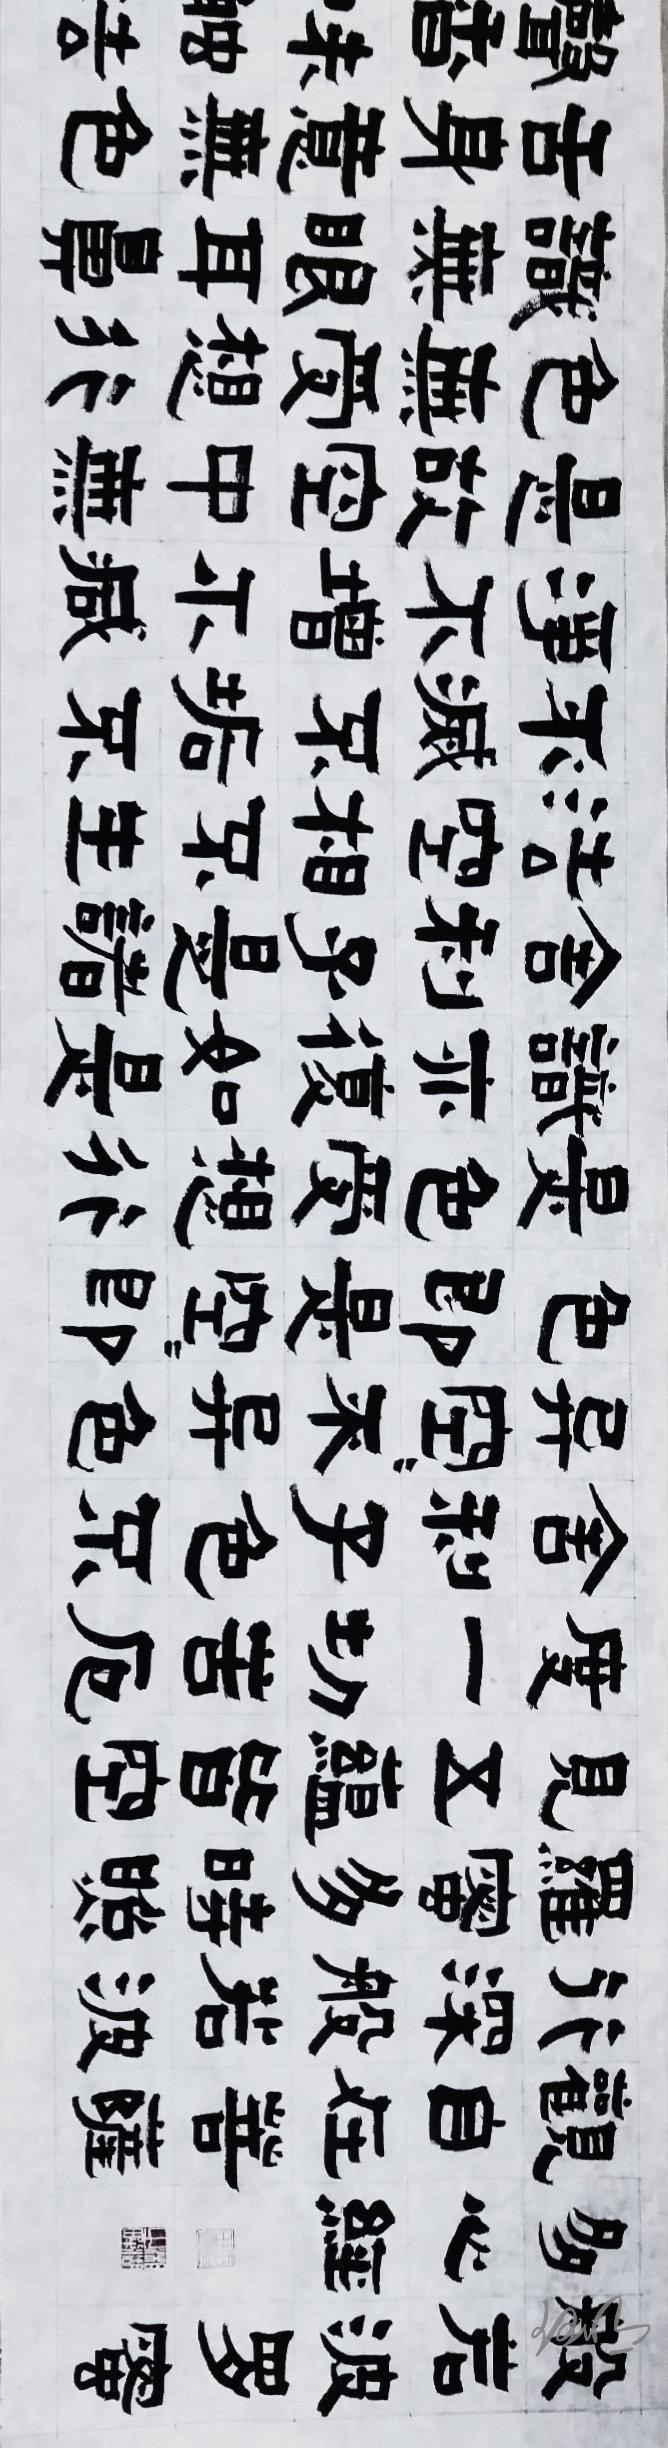 般若波罗蜜
多心經
觀自在菩薩
行深般若波
羅蜜多時照
見五蘊皆空
度一切苦厄
舍利子色不
異空〻不異色
色即是空〻即
是色受想行
識亦復如是
舍利子是諸
法空相不生
不滅不垢不
淨不增不減
是故空中無
色無受想行
識無眼耳鼻
舌身意無色
聲香味觸法